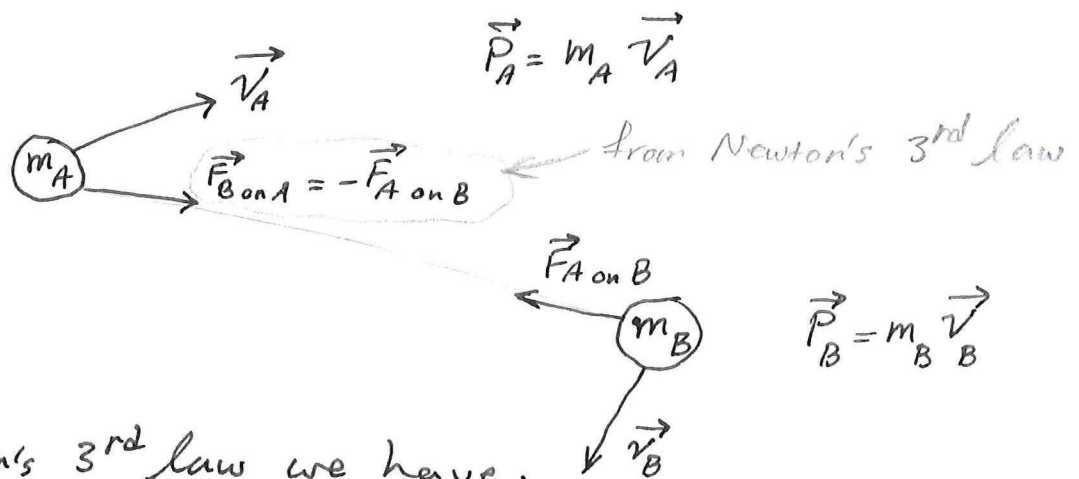 P⃗_A = m_A v⃗_A
v⃗_A
m_A
F⃗_B on A = -F⃗_A on B
from Newton's 3rd law
F⃗_A on B
m_B
P⃗_B = m_B v⃗_B
v⃗_B
n's 3rd law we have.